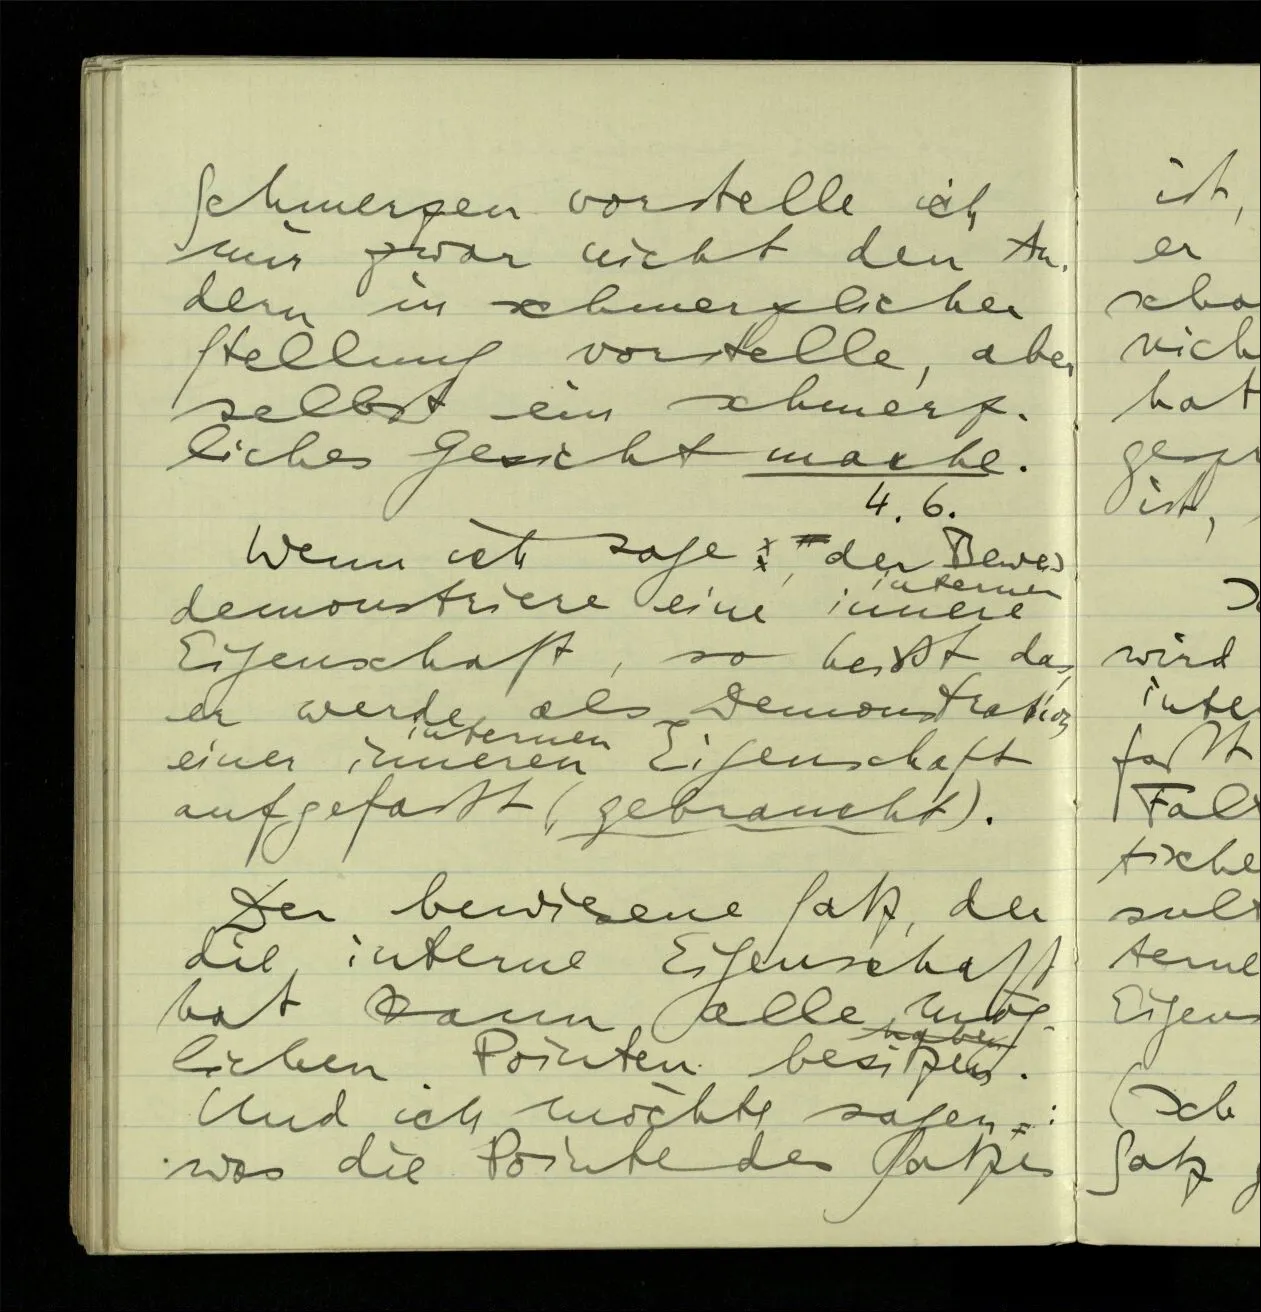 Schmerzen vorstelle ich
mir zwar nicht den An-
dern in schmerzlicher
Stellung vorstelle, aber
selbst ein schmerz-
liches Gesicht mache.
4. 6.
Wenn ich sage: der Beweis
demonstriere eine innere
internen
Eigenschaft, so heißt das,
er werde als Demonstration
einer inneren Eigenschaft
internen
aufgefaßt (gebraucht).
Der bewiesene Satz, der
die interne Eigenschaft
hat kann alle mög-
lichen Pointen besitzen.
haben
Und ich möchte sagen:
was die Pointe des Satzes
ist,
er
scho
nich
hat
gespr
ist,
wird
inter
faßt
Fall
tische
sult
terne
Eigens
(Ich
Satz g